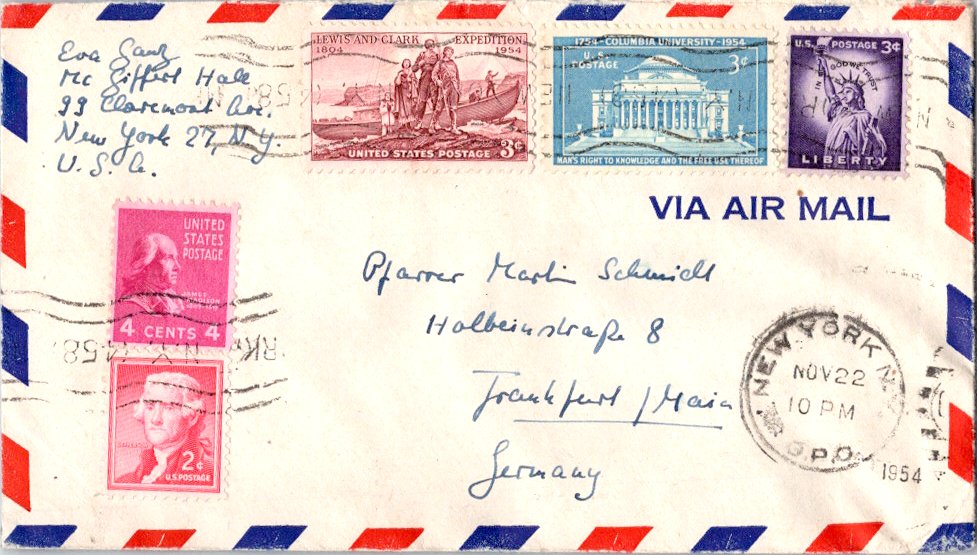 Eva
Mc Giffert Hall
99 Claremont Ave.
New York 27, N.Y.
U.S.A.
LEWIS AND CLARK EXPEDITION
1804 1954
UNITED STATES POSTAGE 3¢
1754-COLUMBIA UNIVERSITY-1954
U.S. POSTAGE 3¢
MAN'S RIGHT TO KNOWLEDGE AND THE FREE USE THEREOF
U.S. POSTAGE 3¢
IN GOD WE TRUST
LIBERTY
VIA AIR MAIL
UNITED
STATES
POSTAGE
JAMES
MADISON
4 CENTS 4
Pfarrer Martin Schmidt
Holbeinstraße 8
Frankfurt / Main
Germany
2¢
U.S. POSTAGE
NEW YORK N.Y.
NOV 22
10 PM
G.P.O.
1954